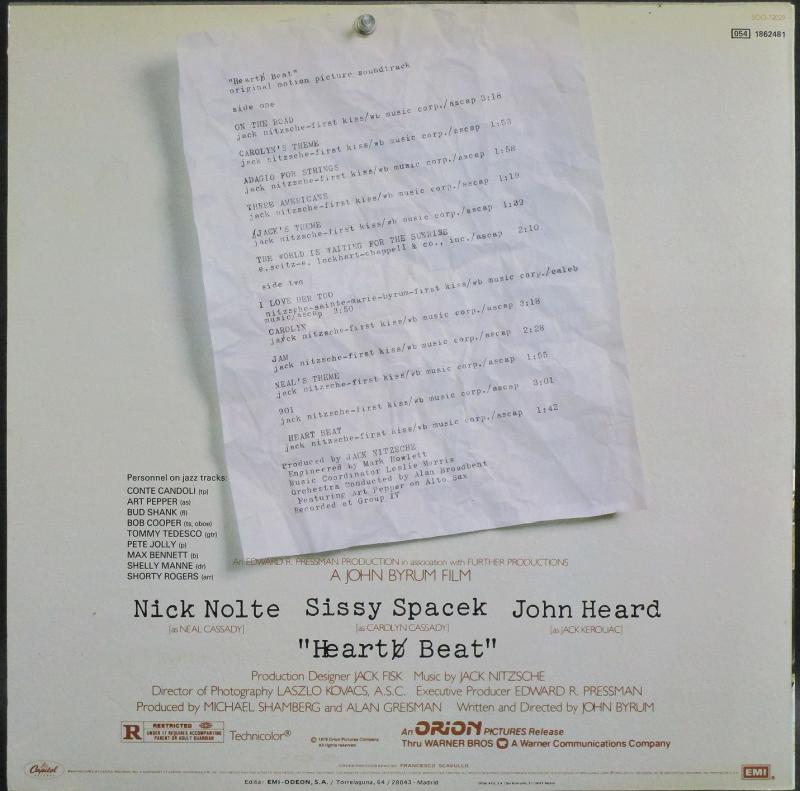 SOO-12029
054 1862481
"Heartb Beat"
original motion picture soundtrack
side one
ON THE ROAD
jack nitzsche-first kiss/wb music corp./ascap 3:18
CAROLYN'S THEME
jack nitzsche-first kiss/wb music corp./ascap 1:53
ADAGIO FOR STRINGS
jack nitzsche-first kiss/wb music corp./ascap 1:58
THREE AMERICANS
jack nitzsche-first kiss/wb music corp./ascap 1:19
JACK'S THEME
jack nitzsche-first kiss/wb music corp./ascap 1:39
THE WORLD IS WAITING FOR THE SUNRISE
e.seitz-e. lockhart-chappell & co., inc./ascap 2:10
side two
I LOVE HER TOO
nitzsche-sainte-marie-byrum-first kiss/wb music corp./caleb
music/ascap 3:50
CAROLYN
jack nitzsche-first kiss/wb music corp./ascap 3:18
JAM
jack nitzsche-first kiss/wb music corp./ascap 2:28
NEAL'S THEME
jack nitzsche-first kiss/wb music corp./ascap 1:55
901
jack nitzsche-first kiss/wb music corp./ascap 3:01
HEART BEAT
jack nitzsche-first kiss/wb music corp./ascap 1:42
Produced by JACK NITZSCHE
Engineered by Mark Howlett
Music Coordinator Leslie Morris
Orchestra Conducted by Alan Broadbent
Featuring Art Pepper on Alto Sax
Recorded at Group IV
Personnel on jazz tracks:
CONTE CANDOLI (tp)
ART PEPPER (as)
BUD SHANK (fl)
BOB COOPER (ts, oboe)
TOMMY TEDESCO (gtr)
PETE JOLLY (p)
MAX BENNETT (b)
SHELLY MANNE (dr)
SHORTY ROGERS (arr)
An EDWARD R. PRESSMAN PRODUCTION in association with FURTHER PRODUCTIONS
A JOHN BYRUM FILM
Nick Nolte Sissy Spacek John Heard
[as NEAL CASSADY] [as CAROLYN CASSADY] [as JACK KEROUAC]
"Heartb Beat"
Production Designer JACK FISK Music by JACK NITZSCHE
Director of Photography LASZLO KOVACS, A.S.C. Executive Producer EDWARD R. PRESSMAN
Produced by MICHAEL SHAMBERG and ALAN GREISMAN Written and Directed by JOHN BYRUM
R RESTRICTED
UNDER 17 REQUIRES ACCOMPANYING
PARENT OR ADULT GUARDIAN
Technicolor®
© 1979 Orion Pictures Company
All rights reserved.
An ORION PICTURES Release
Thru WARNER BROS A Warner Communications Company
COVER PHOTOGRAPHY BY FRANCESCO SCAVULLO
Capitol
EMI
Edita: EMI-ODEON, S.A. / Torrelaguna, 64 / 28043 - Madrid